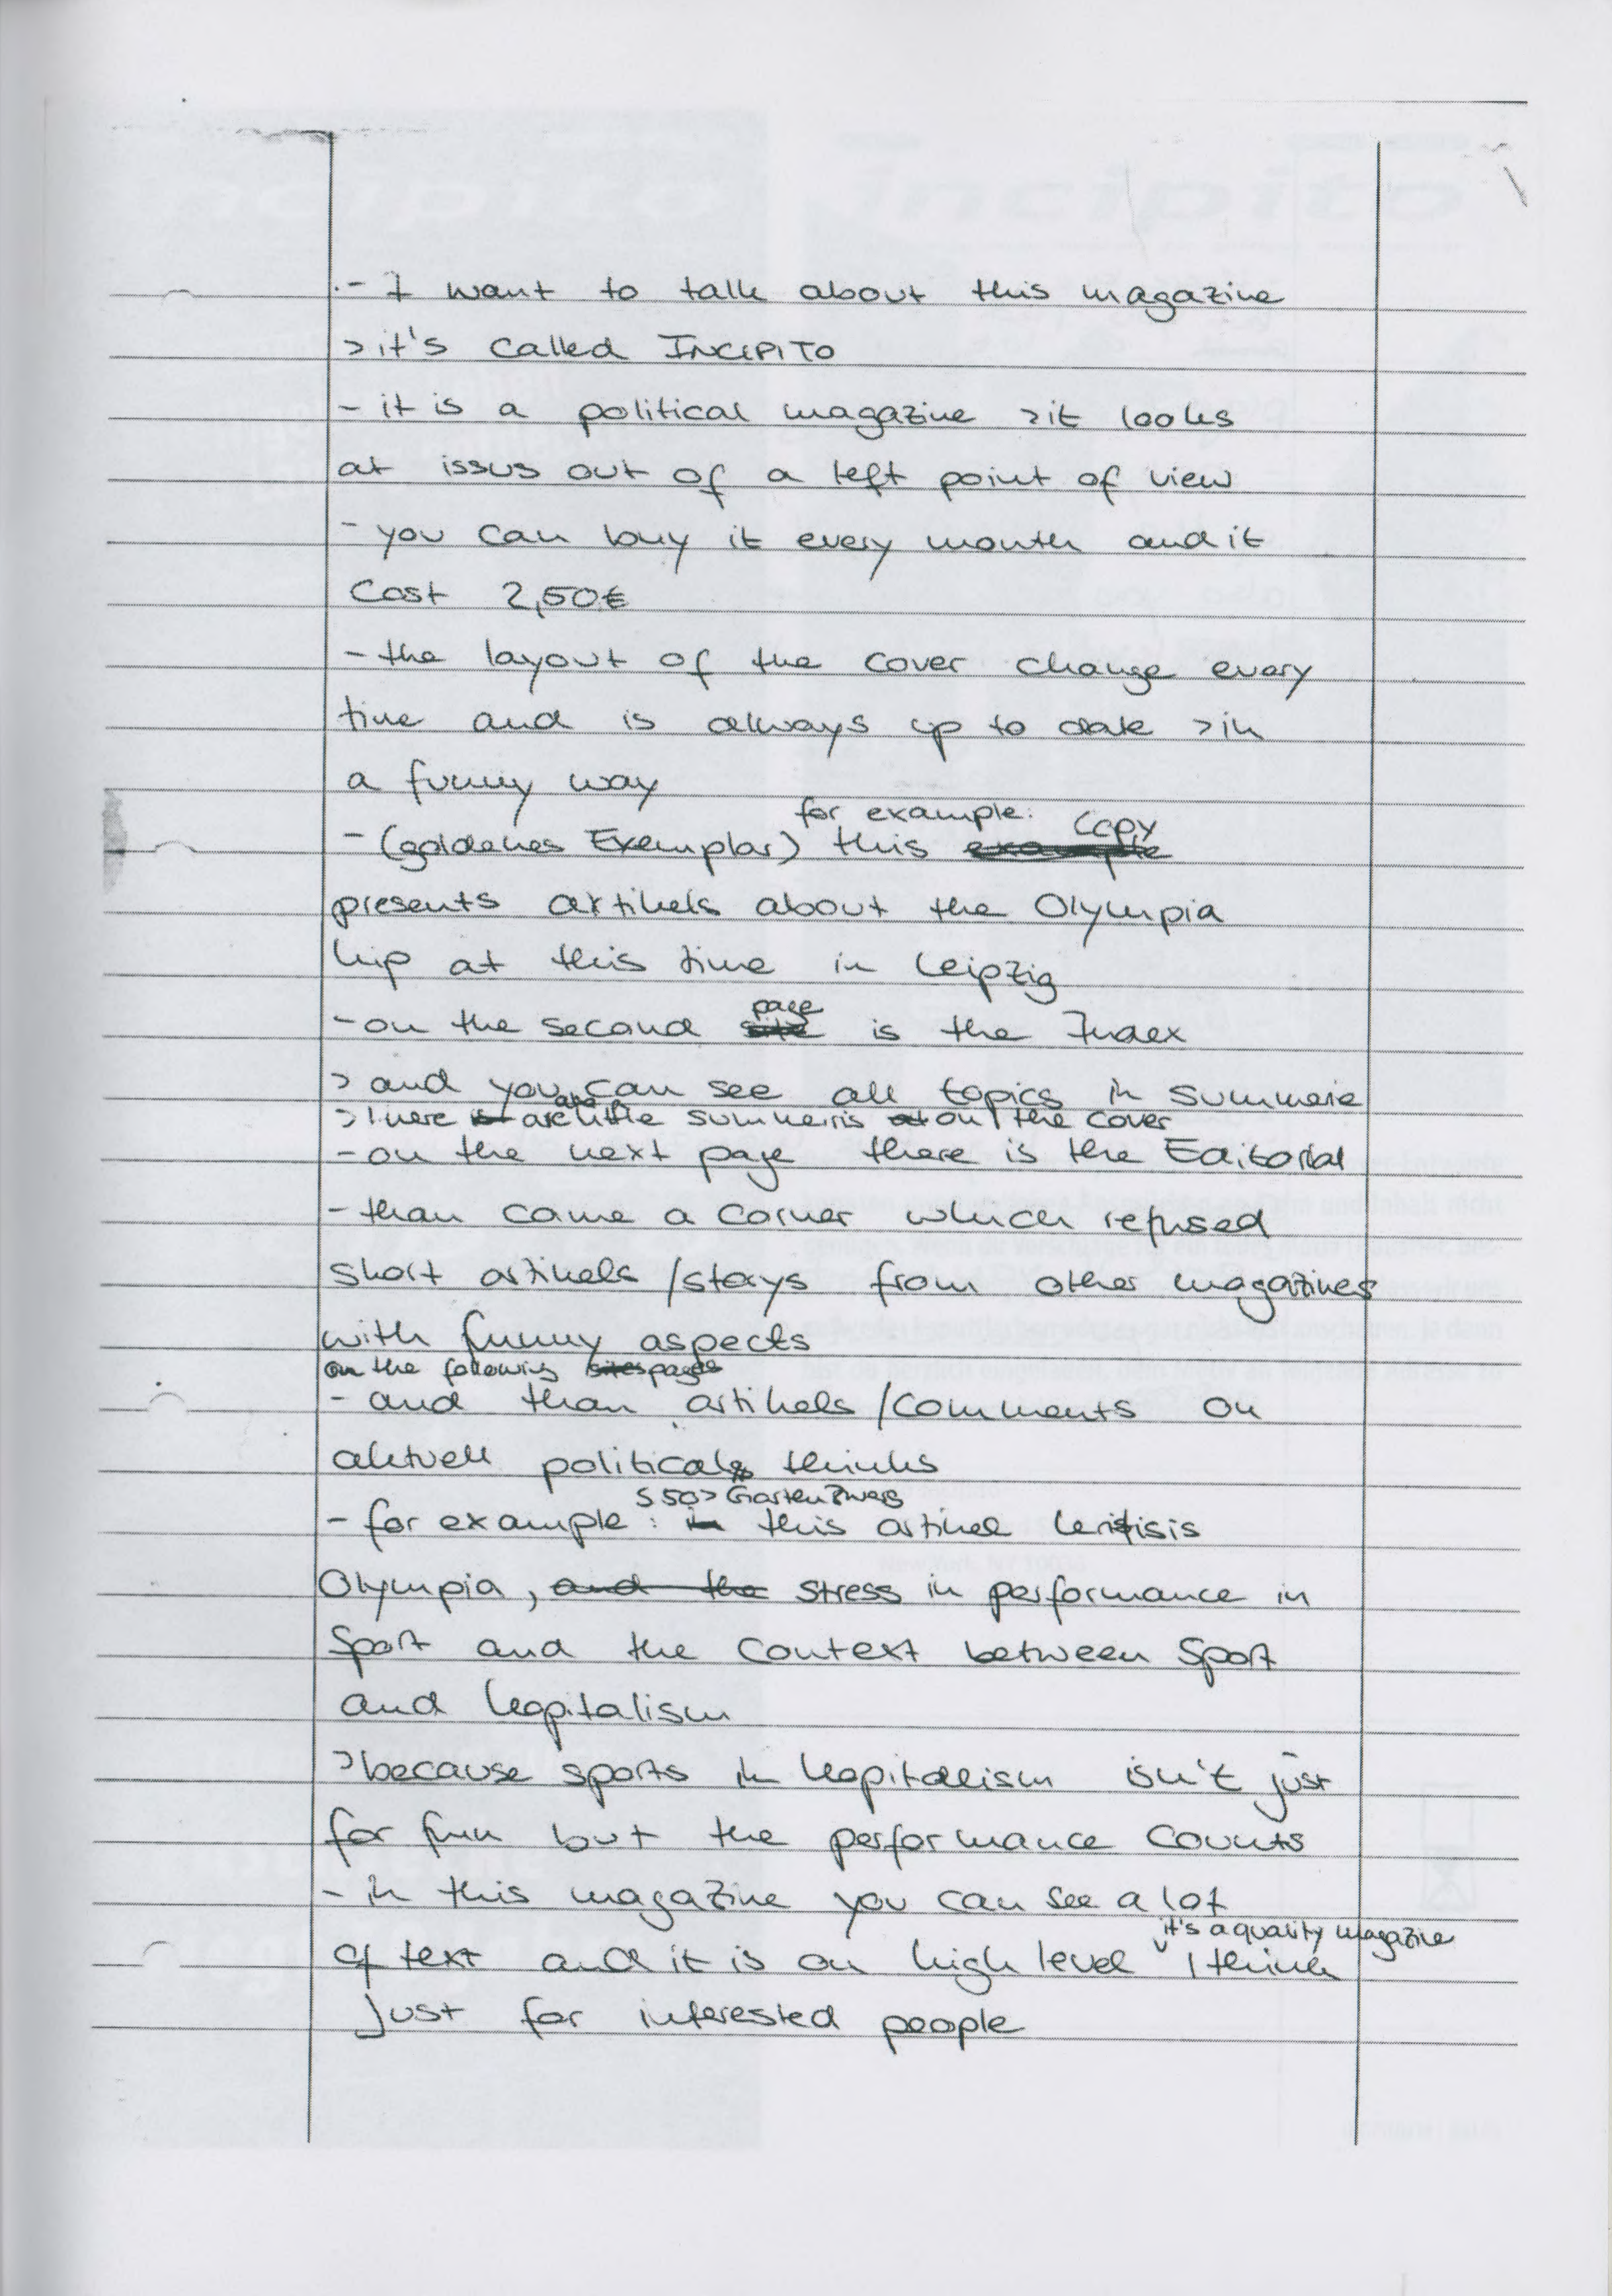 - I want to talk about this magazine
> it's called INCIPITO
- it is a political magazine > it looks
at issus out of a left point of view
- you can buy it every month and it
cost 2,50€
- the layout of the cover change every
time and is always up to date > in
a funny way
for example: copy
- (goldenes Exemplar) this example
presents artikels about the Olympia
hip at this time in Leipzig
page
- on the second site is the Index
> and you can see all topics in summerie
> there is are little summeiris at on the cover
- on the next page there is the Editorial
- than came a corner which refused
short artikels / storys from other magazines
with funny aspects
on the following sites pages
- and than artikels / comments on
aktuell political thinks
S 50 > Gartenzwerg
- for example: in this artikel kritisis
Olympia, and the stress in performance in
Sport and the context between Sport
and kapitalism
> because sports in kapitalism isn't just
for fun but the performance counts
- in this magazine you can see a lot
it's a quality magazine
of text and it is on high level I think
just for interested people